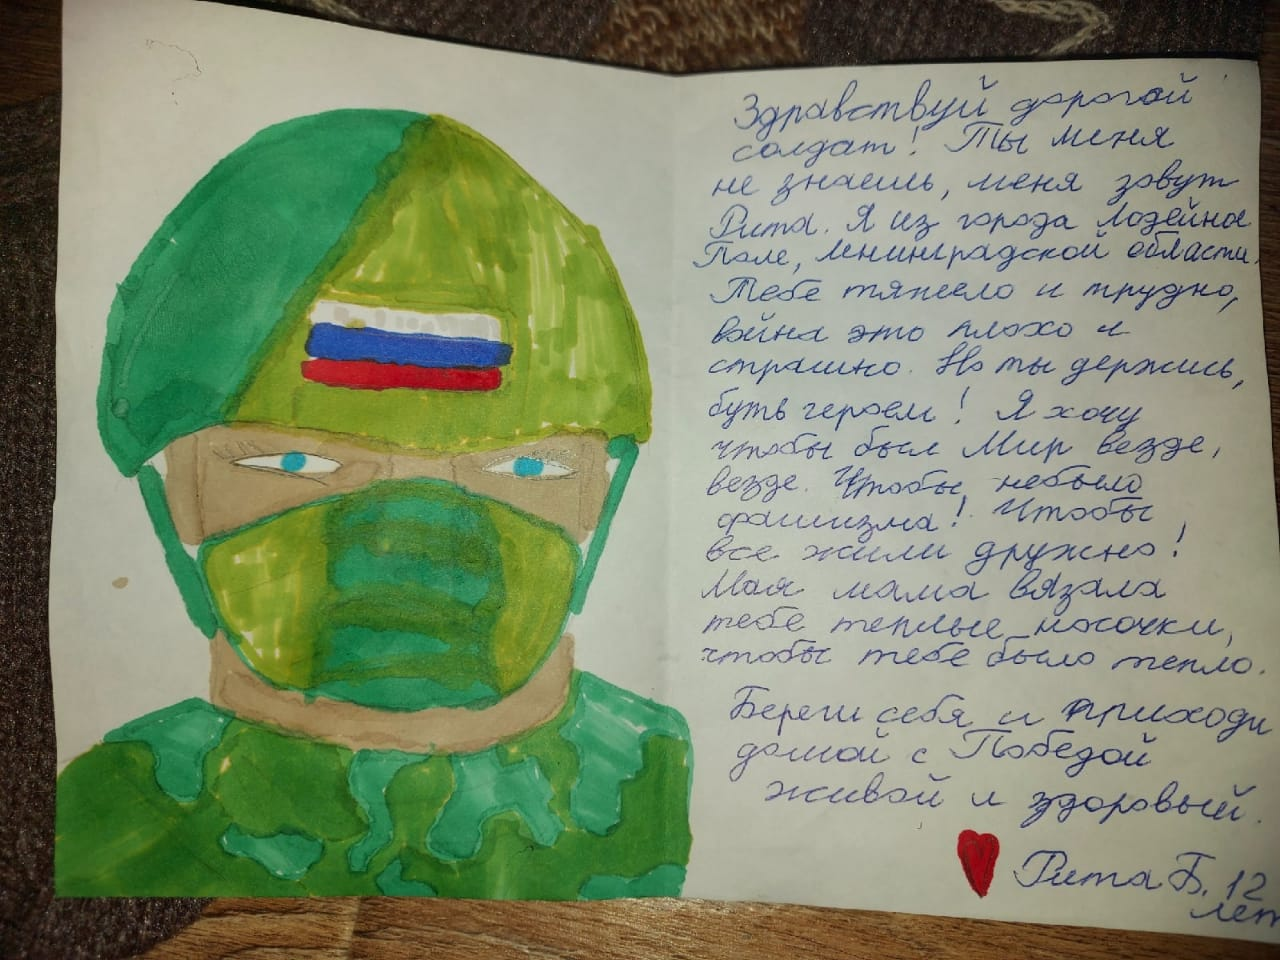 Здравствуй дорогой
солдат! Ты меня
не знаешь, меня зовут
Рита. Я из города Лодейное
Поле, Ленинградской области.
Тебе тяжело и трудно,
война это плохо и
страшно. Но ты держись,
буть героем! Я хочу
чтобы был Мир везде,
везде. Чтобы небыло
фашизма! Чтобы
все жили дружно!
Мая мама вязала
тебе теплые носочки,
чтобы тебе было тепло.
Береги себя и приходи
домой с Победой
живой и здоровый.
Рита Б. 12
лет